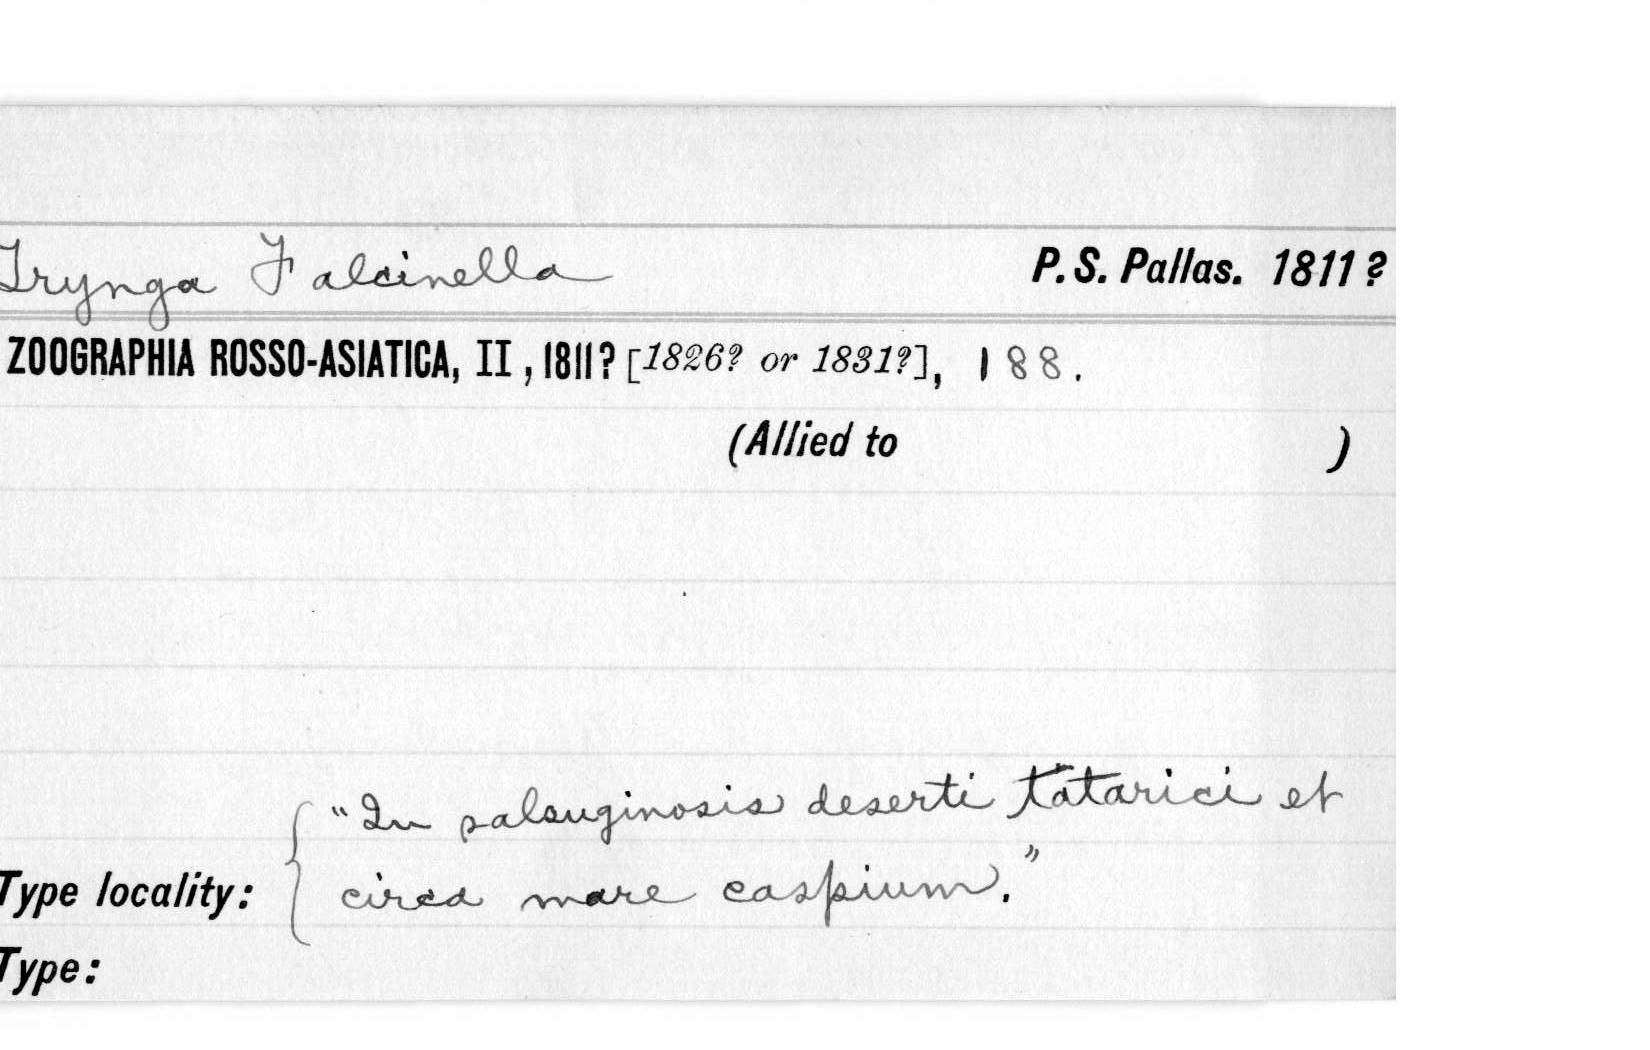 Trynga Falcinella P. S. Pallas. 1811?
ZOOGRAPHIA ROSSO-ASIATICA, II, 1811? [1826? or 1831?], 188.
(Allied to )
"In salsuginosis deserti tatarici et
Type locality: circa mare caspium."
Type: